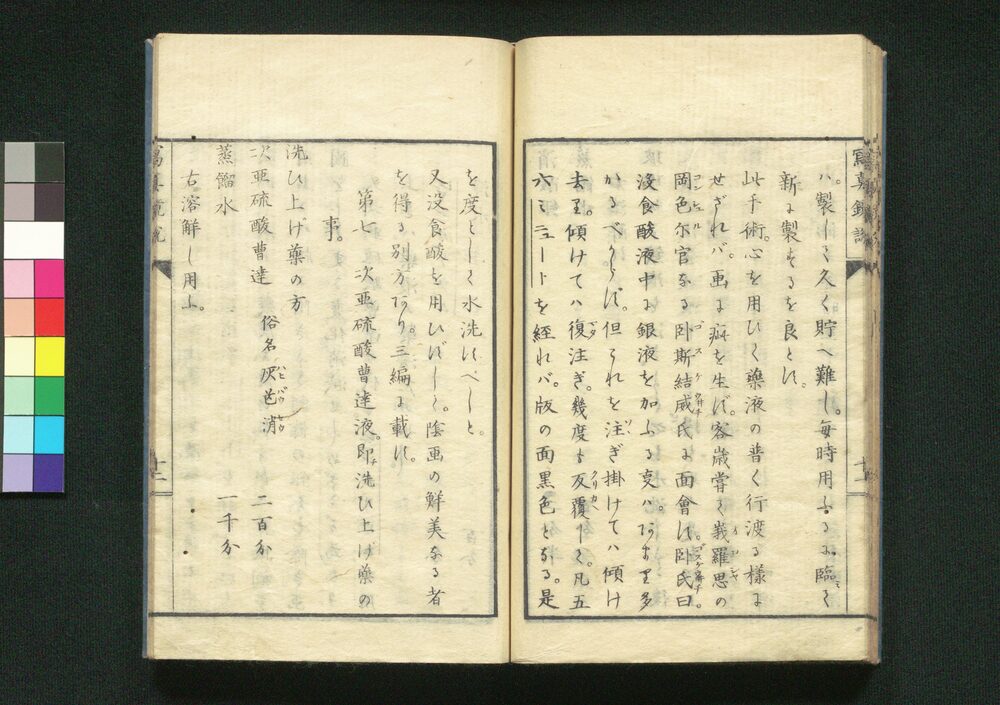 ハ。製して久く貯へ難し。毎時用ふるに臨て
新に製するを良とす。
此手術。心を用ひて藥液の普く行渡る様に
せざれバ。画に疵を生ず。客歳嘗て峩羅思の
岡色尓官なる卧斯結戚氏に面會す。卧氏曰。
没食酸液中に銀液を加ふる㕝ハ。あまり多
かるべからず。但これを注ぎ掛けてハ傾け
去り。傾けてハ復注ぎ。幾度も反覆して。凡五
六ミニュートを經れバ。版の面黒色となる。是
を度として水洗すべしと。
又没食酸を用ひずして。陰画の鮮美なる者
を得る別方あり。三編に載す。
第七 次亜硫酸曹達液。即チ洗ひ上げ藥の
事。
洗ひ上げ藥の方
次亜硫酸曹達 俗名灰芒消 二百分
蒸餾水 一千分
右溶解し用ふ。